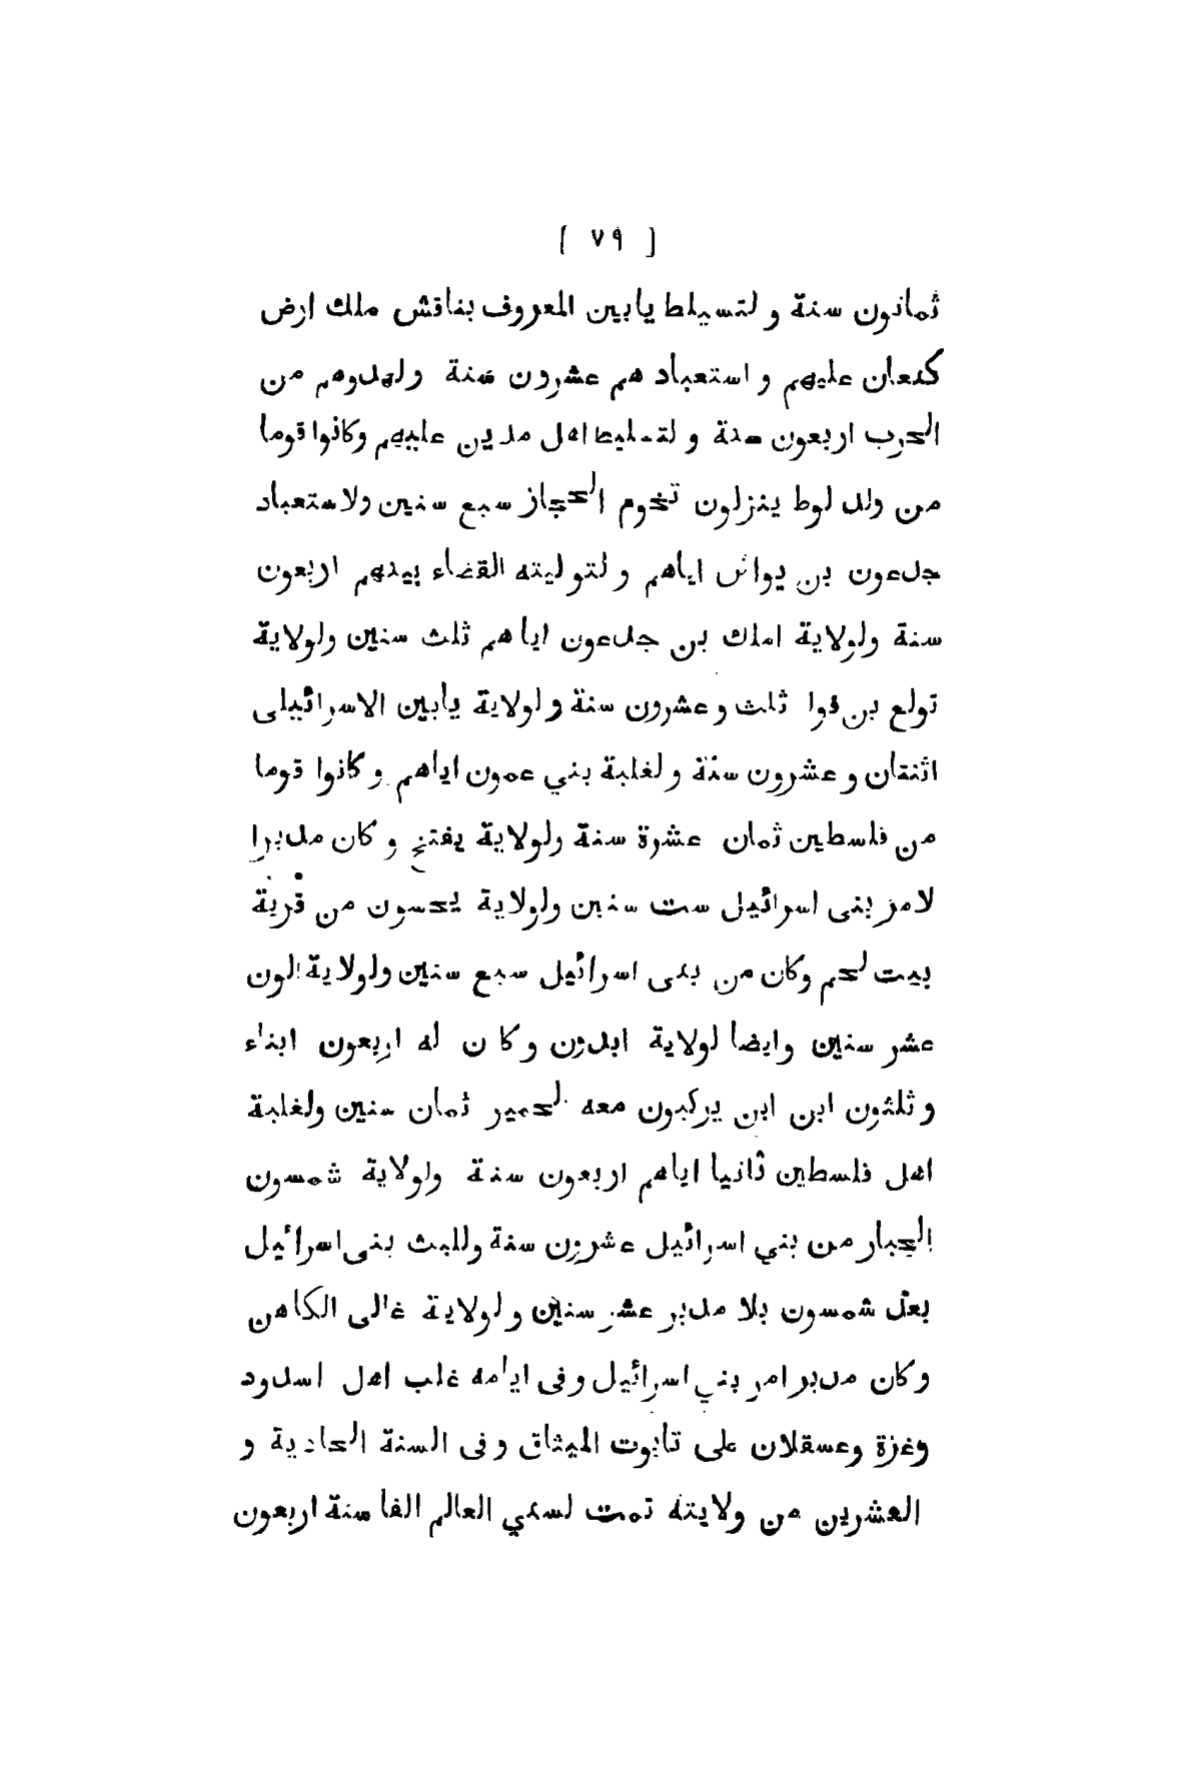 [ ٧٩ ]
ثمانون سنة و لتسيلط يابين المعروف بناقش ملك ارض
كنعان عليهم و استعباد هم عشرون سنة ولهدوهم من
الحرب اربعون سنة و لتسليط اهل مدين عليهم وكانوا قوما
من ولد لوط ينزلون تخوم الحجاز سبع سنين ولاستعباد
جدعون بن يواش اياهم و لتوليته القضاء بينهم اربعون
سنة ولولاية املك بن جدعون اياهم ثلث سنين ولولاية
تولع بن فوا ثلث وعشرون سنة و لولاية يابين الاسرائيلى
اثنتان و عشرون سنة و لغلبة بني عمون اياهم و كانوا قوما
من فلسطين ثمان عشرة سنة ولولاية يفتح و كان مدبرا
لامر بنى اسرائيل ست سنين ولولاية يحسون من قرية
بيت لحم وكان من بنى اسرائيل سبع سنين ولولاية الون
عشر سنين وايضا لولاية ابدون وكان له اربعون ابناء
و ثلثون ابن ابن يركبون معه الحمير ثمان سنين ولغلبة
اهل فلسطين ثانيا اياهم اربعون سنة ولولاية شمسون
الجبار من بني اسرائيل عشرون سنة وللبث بنى اسرائيل
بعد شمسون بلا مدبر عشر سنين و لولاية غالى الكاهن
وكان مدبر امر بني اسرائيل وفى ايامه غلب اهل اسدود
وغزة وعسقلان على تابوت الميثاق وفى السنة الحادية و
العشرين من ولايته تمت لسني العالم الفا سنة اربعون